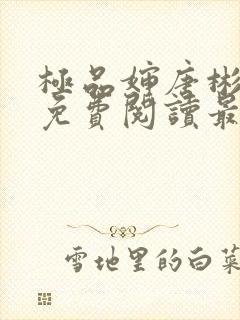 極品婶唐彬
免費閱讀最
雪地里的白菜